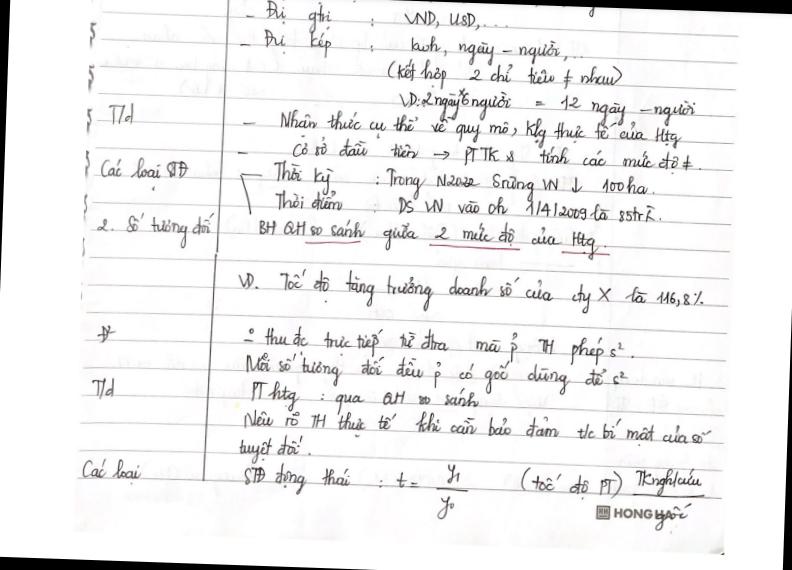 - Đvị ghi : VND, USD,...
- Đvị kép : kwh, ngày - người,...
(kết hợp 2 chỉ tiêu ≠ nhau)
VD: 2 ngày * 6 người = 12 ngày - người
T/d - Nhận thức cụ thể về quy mô, klg thực tế của Htg
- Cơ sở đầu tiên → PTTK & tính các mức độ ≠.
Các loại STĐ Thời kỳ : Trong N2022 Srừng VN ↓ 100ha.
Thời điểm : DS VN vào 0h 1/4/2009 là 85tr
2. Số tương đối BH QH so sánh giữa 2 mức độ của Htg.
VD. Tốc độ tăng trưởng doanh số của cty X là 116,8%
Đ² ∸ thu đc trực tiếp từ đtra mà p̉ TH phép s².
Mỗi số tương đối đều p̉ có gốc dùng để s²
T/d PT htg : qua QH so sánh
Nêu rõ TH thực tế khi cần bảo đảm t/c bí mật của số
tuyệt đối.
Các loại STĐ động thái : t = y₁ / y₀ (tốc độ PT) TK nghĩ cứu
gốc
HONG HA